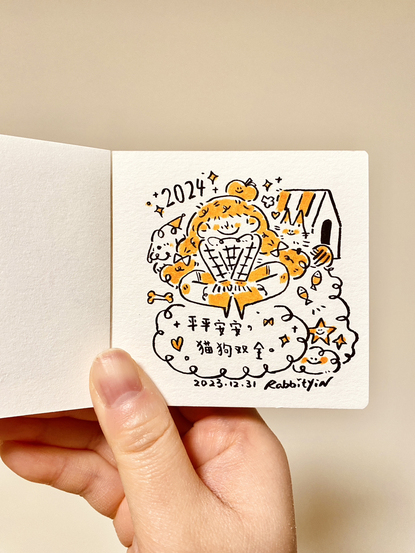 2024
平平安安,
猫狗双全
2023.12.31 RabbityiN